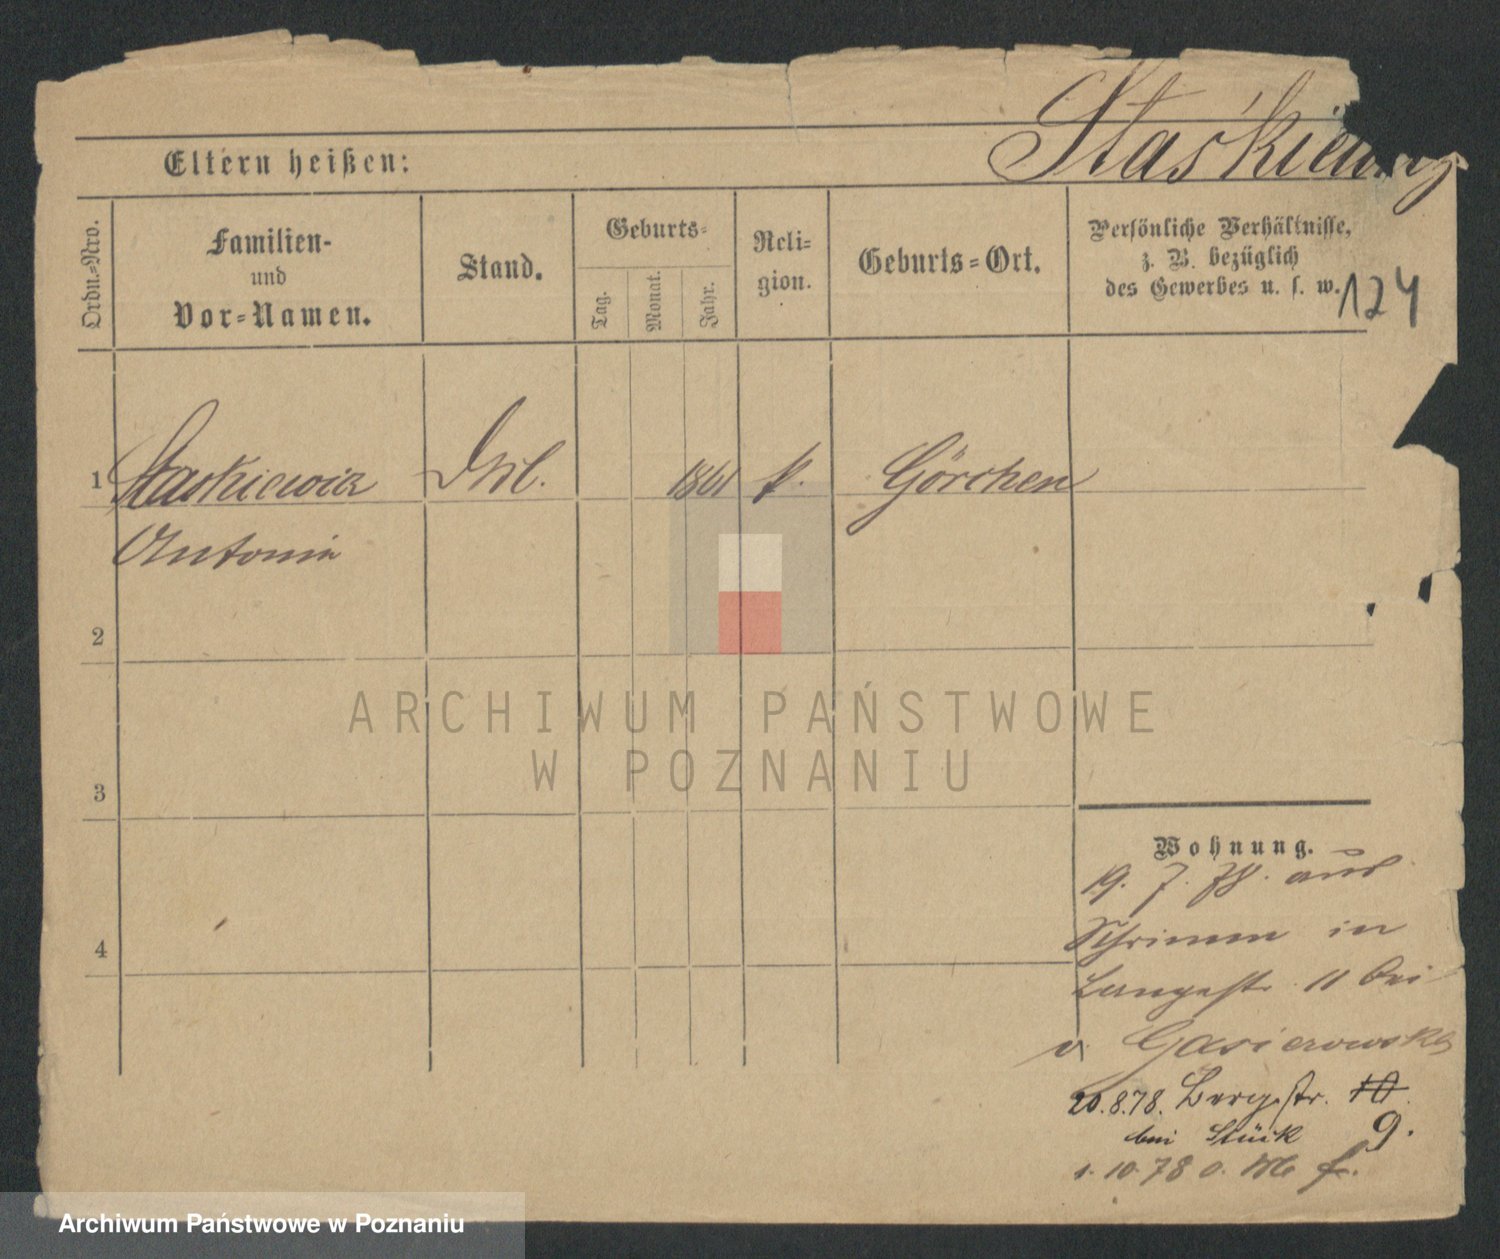 Staśkiewicz
Eltern heißen:
Ordn.-Nro.
Familien-
und
Vor-Namen.
Stand.
Geburts-
Tag.
Monat.
Jahr.
Reli-
gion.
Geburts-Ort.
Persönliche Verhältnisse,
z. B. bezüglich
des Gewerbes u. s. w.
124
1 Staskiewicz 1861 k. Görchen
Antonia
2
3
4
Wohnung.
19. 7. 78. aus
Schrimm in
Langestr. 11 bei
v. Gasierowski
20.8.78. Bergstr. 10.
9.
bei Stück
1. 10. 78 o.
ARCHIWUM PAŃSTWOWE
W POZNANIU
Archiwum Państwowe w Poznaniu